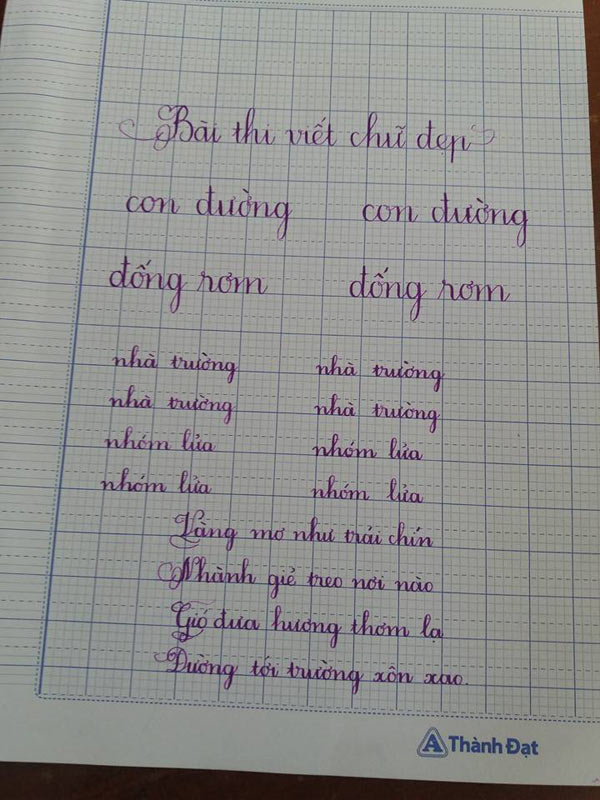 Bài thi viết chữ đẹp
con đường con đường
đống rơm đống rơm
nhà trường nhà trường
nhà trường nhà trường
nhóm lửa nhóm lửa
nhóm lửa nhóm lửa
Vàng mơ như trái chín
Nhành giẻ treo nơi nào
Gió đưa hương thơm lạ
Đường tới trường xôn xao.
Thành Đạt